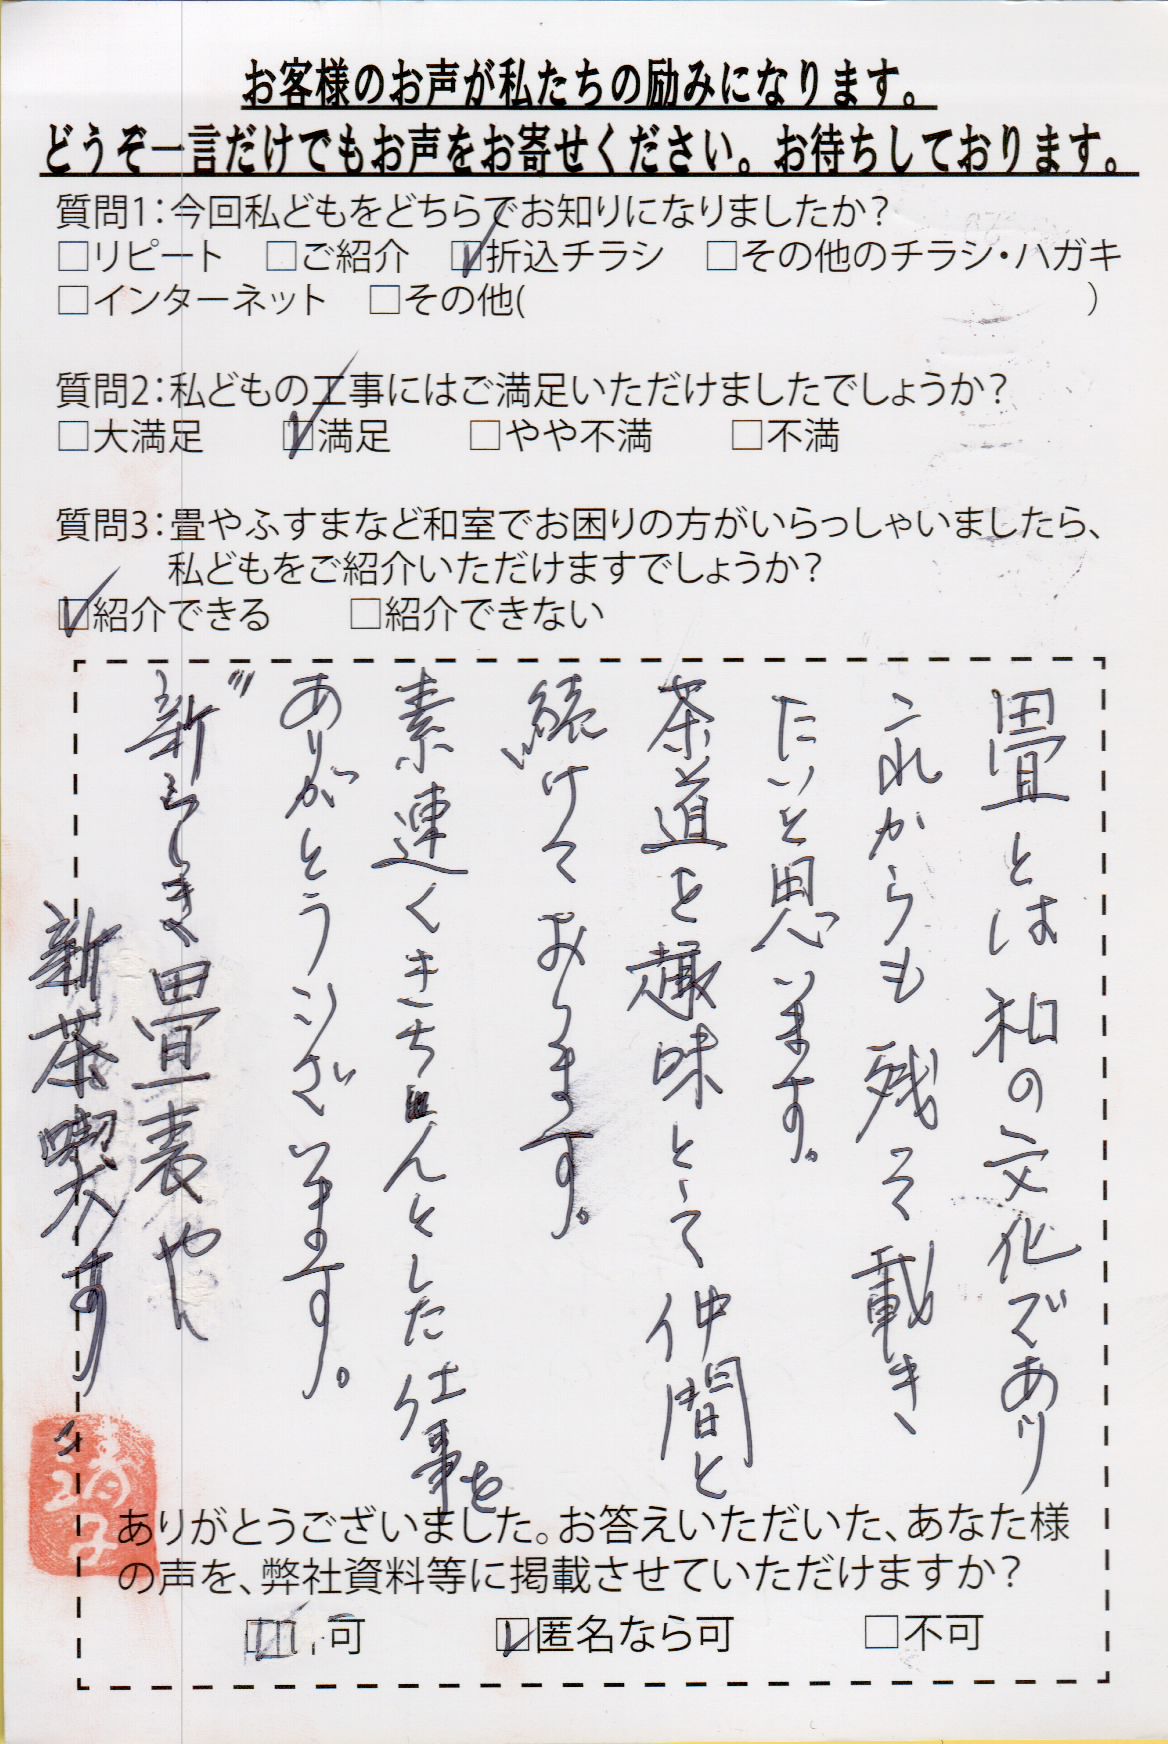 お客様のお声が私たちの励みになります。
どうぞ一言だけでもお声をお寄せください。お待ちしております。
質問1：今回私どもをどちらでお知りになりましたか？
□リピート □ご紹介 ☑折込チラシ □その他のチラシ・ハガキ
□インターネット □その他( )
質問2：私どもの工事にはご満足いただけましたでしょうか？
□大満足 ☑満足 □やや不満 □不満
質問3：畳やふすまなど和室でお困りの方がいらっしゃいましたら、
私どもをご紹介いただけますでしょうか？
☑紹介できる □紹介できない
畳とは和の文化であり
これからも残して戴き
たいと思います。
茶道を趣味として仲間と
続けております。
素速くきちんとした仕事を
ありがとうございます。
新らしき畳表や
新茶喫す
清子
ありがとうございました。お答えいただいた、あなた様
の声を、弊社資料等に掲載させていただけますか？
□可 ☑匿名なら可 □不可